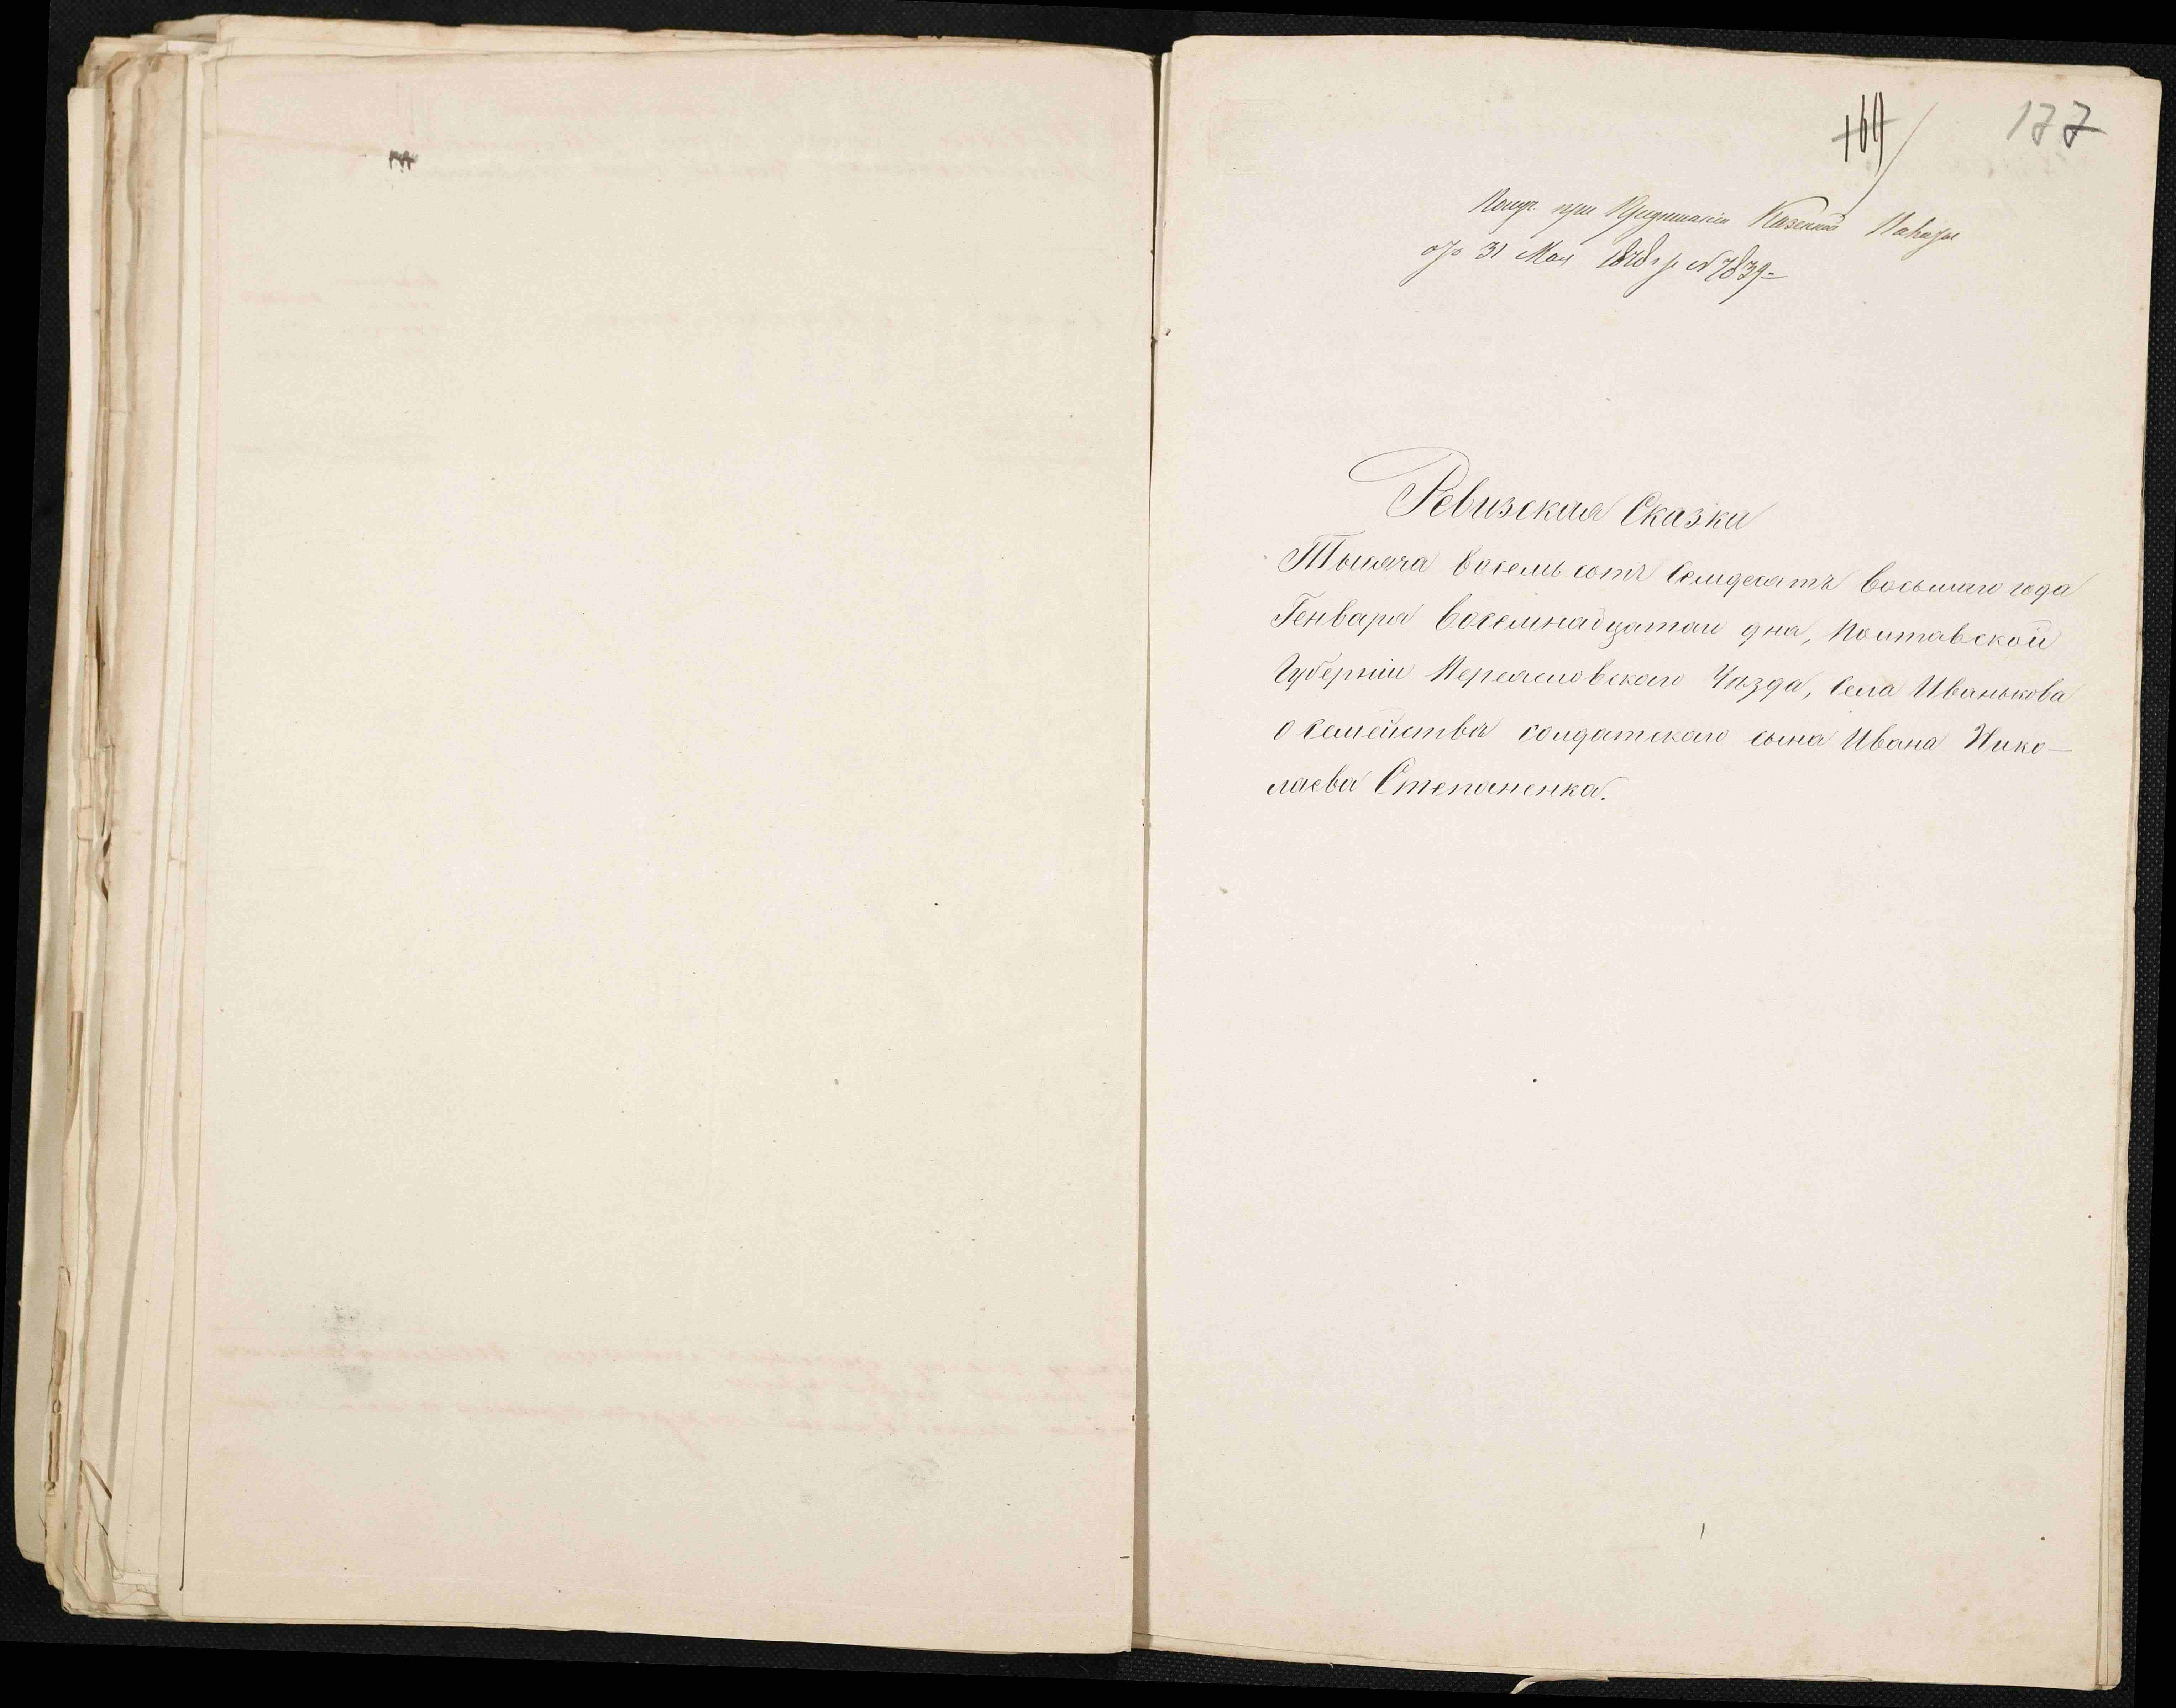 169
177
Получ. при Предписаніи Казенной Палаты
отъ 31 Мая 1878 г. № 7839
Ревизская Сказка
Тысяча восемь сотъ семдесятъ восьмого года
Генваря восемнадцатаго дня, Полтавской
Губерніи Переясловскаго Уѣзда, села Иванькова
о семействѣ солдатскаго сына Ивана Нико-
лаева Степаненка.